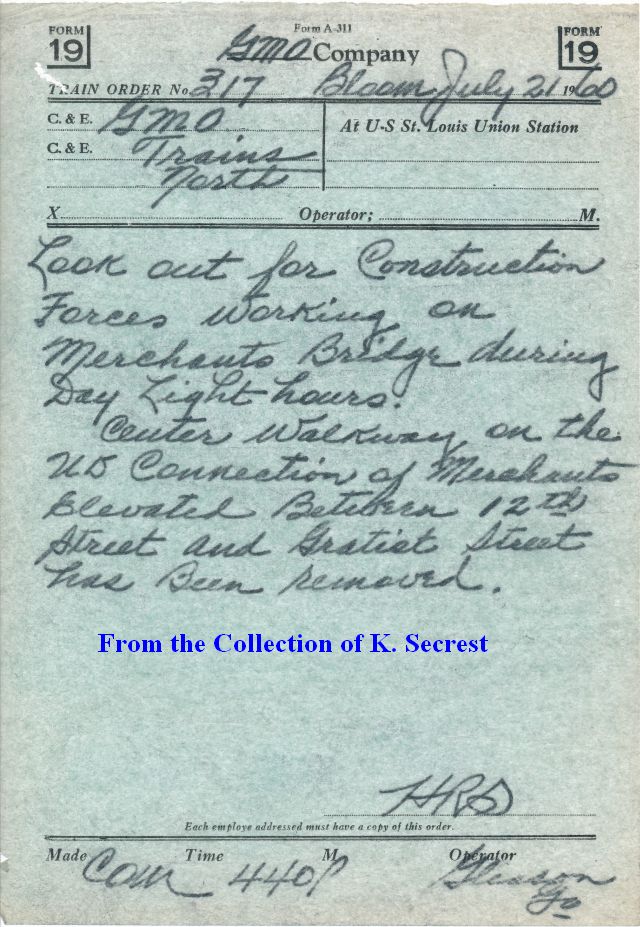 Form A-311
FORM 19 GMO Company FORM 19
TRAIN ORDER No. 317 Bloom July 21 1960
C. & E. GMO At U-S St. Louis Union Station
C. & E. Trains
North
X Operator; M.
Look out for Construction
Forces working on
Merchants Bridge during
Day Light hours.
Center Walkway on the
UD Connection of Merchants
Elevated Between 12th
Street and Gratiot Street
has Been removed.
From the Collection of K. Secrest
HRS
Each employe addressed must have a copy of this order.
Made Com Time 440P M Operator Gleason